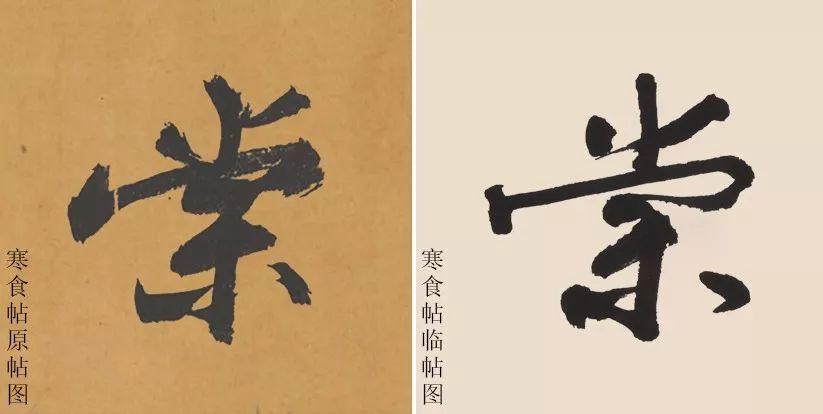 棠
寒食帖原帖图
棠
寒食帖临帖图